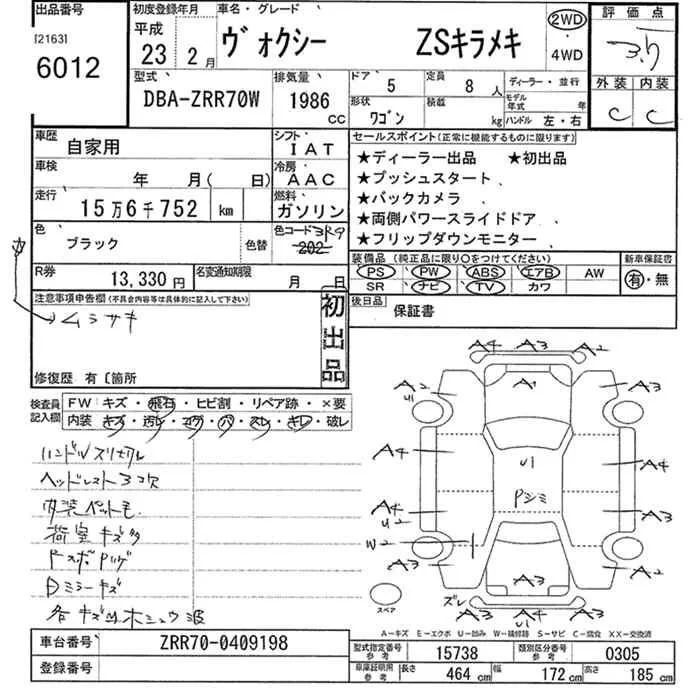 出品番号
[2163]
6012
初度登録年月
平成
23年2月
車名・グレード
ヴォクシー ZSキラメキ
2WD
・
4WD
評価点
3.5
外装 内装
C C
型式
DBA-ZRR70W
排気量
1986
CC
ドア 5
定員 8人
形状 ワゴン
積載 kg
ディーラー・並行
モデル年式 年
ハンドル 左・右
車歴 自家用
シフト IAT
車検 年 月( 日)
冷房 AAC
走行 15万6千752 km
燃料 ガソリン
色 ブラック
色替
色コード 3R9
202
R券 13,330円
名変通知期限 月 日
セールスポイント(正常に機能するものに限ります)
★ディーラー出品 ★初出品
★プッシュスタート、
★バックカメラ、
★両側パワースライドドア、
★フリップダウンモニター、
装備品(純正品に限り○をつけてください)
PS PW ABS エアB AW
SR ナビ TV カワ
新車保証書
有・無
後日品 保証書
注意事項申告欄(不具合内容等は具体的に記入して下さい)
ムラサキ
初出品
修復歴 有〔箇所
検査員記入欄
FW:キズ・飛石・ヒビ割・リペア跡・×要
内装:キズ・汚レ・コゲ・穴・スレ・キレ・破レ
ハンドルスリキレ
ヘッドレスト3コ欠
内装ペット毛
荷室キズ多
Dミラーキズ
A4 A3 A2
A2 A1 A3
U1
A4 U1 A4
A4 Pシミ A3
U2
W2
A3 A3 A2
ズレ A3 A4 A3
U1
スペア
A-キズ E-エクボ U-凹み W-補修跡 S-サビ C-腐食 XX-交換済
車台番号 ZRR70-0409198
登録番号
型式指定番号 参考 15738
類別区分番号 参考 0305
車庫証明用 参考 長さ 464cm 幅 172cm 高さ 185cm